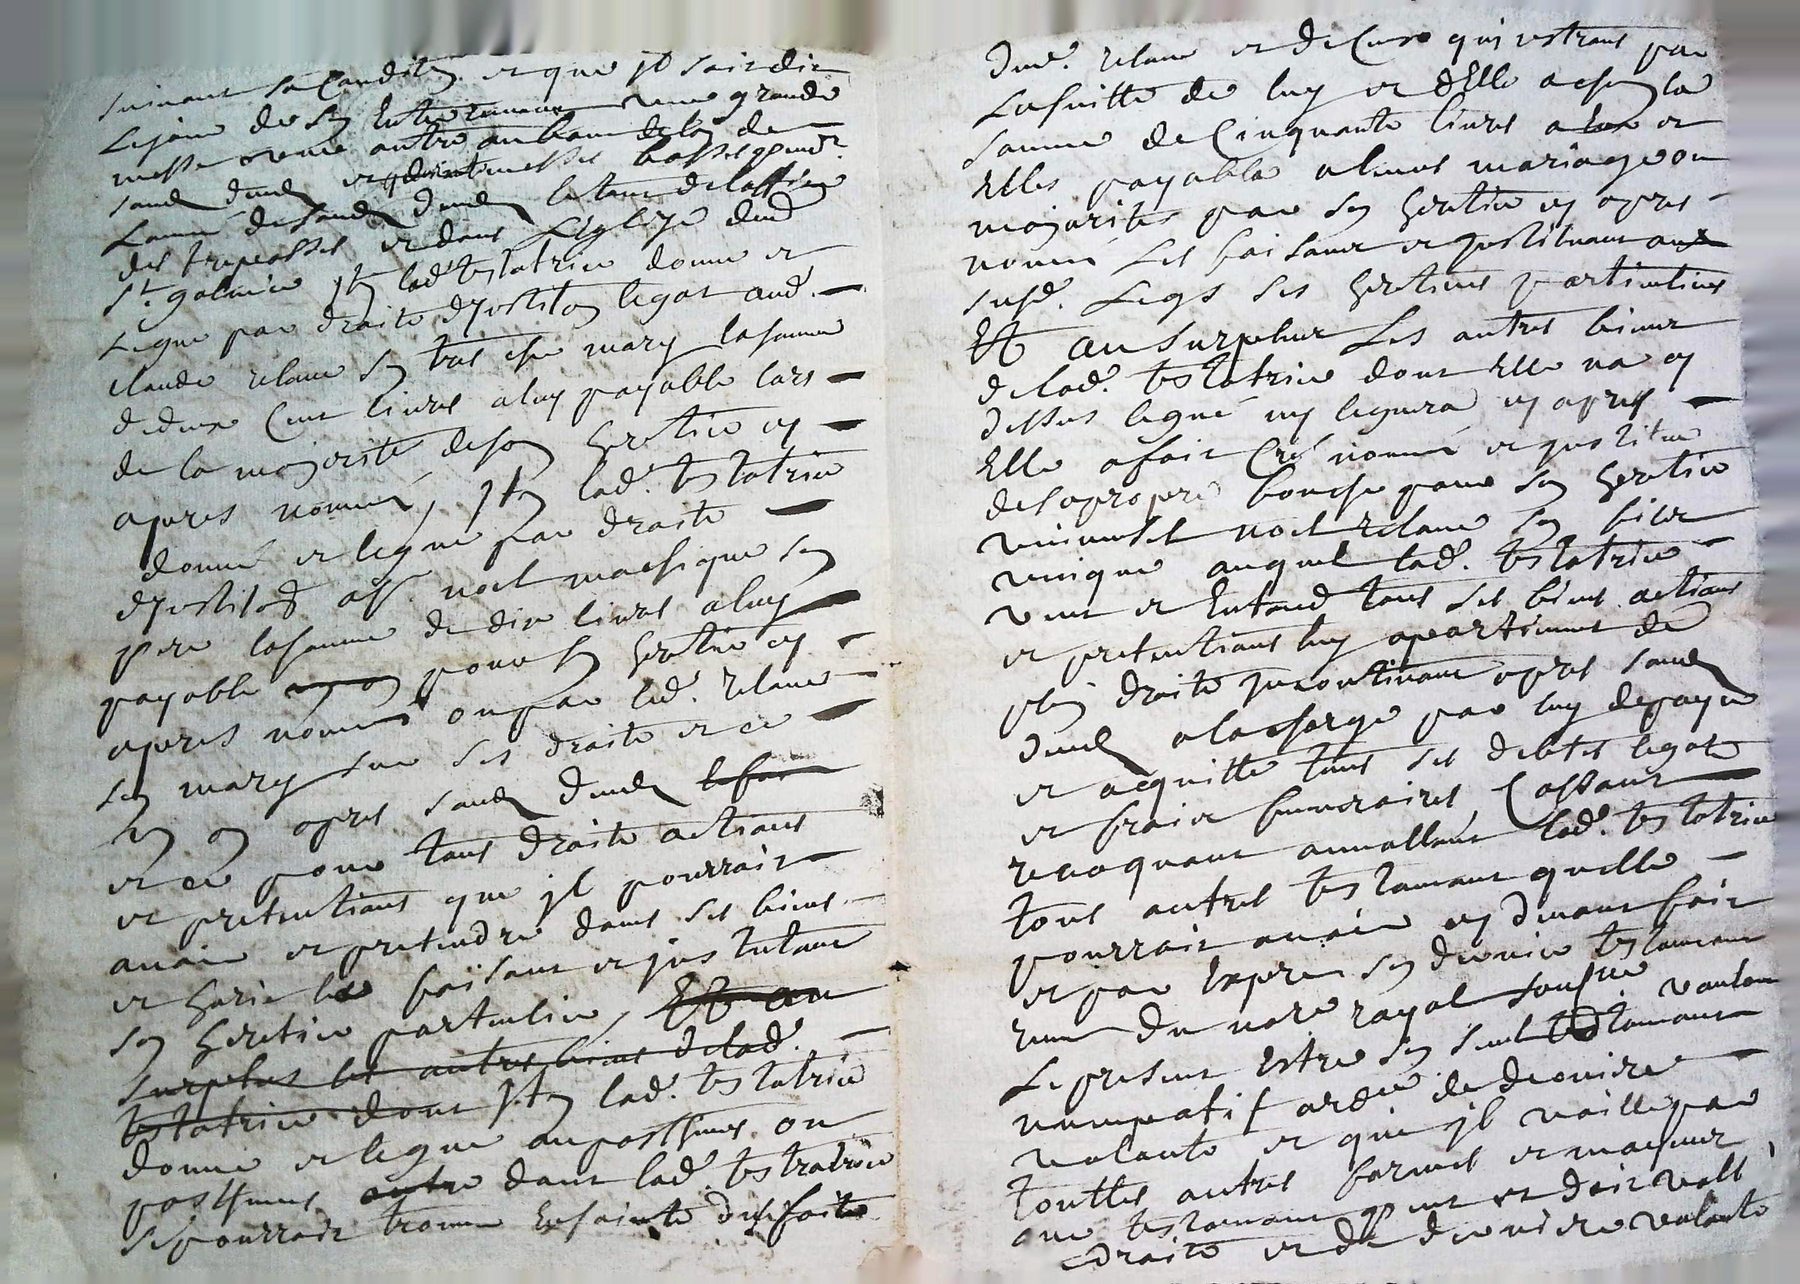 suivant sa Condition et que jl soit dit
Lejour de son Enterrement une grande
messe et une autre au bout de lan de
sond dund et messes basses pendt
Lanné desond dund
des trepasses et dans Leglize dud
St. galmier jtem lad. testatrice donne et
Legue par droit djnstiton legat aud.
claude relaue son tres cher mary lasomme
dedeux Cent livres aluy payable lors
de la majorité deson heretier cy
apres nommé, jtem lad. testatrice
donne et legue par droite
djnstiton a sr. noel machique son
pere lasomme de dix livres aluy
payable pour son heretier cy
apres nommé ou par led. relaue
son mary sur ses droits et ce
un an apres sond dund
et ce pour tous droits actions
et pretentions que jl pourroit
avoir et pretendre dans ses biens
et horie le faisant et jnstituant
son heretier particulier, Et au
surplus les autres biens delad.
testatrice dont jtem lad. testatrice
donne et legue au posthume ou
posthumes dont lad. testatrice
se pourroit trouver Enceinte
dud. relaue et deCeux qui restront par
Lasuitte de luy et dElle achescun la
somme de Cinquante livres a Eux et
Elles payable aleurs mariage ou
majorités par son heretier cy apres
nommé Les faisant et jnstituant aux
susd. Legs ses heretiers particuliers
Et au surplus Les autres biens
delad. testatrice dont Elle na cy
dessus legué ny leguera cy apres
Elle a fait Créé nommé et jnstitue
desapropre bouche pour son heretier
universel noel relaue son filz
unique auquel lad. testatrice
veut et Entend tous ses biens actions
et pretentions luy apartiennent de
plein droits jncontinant apres sond
dund alacharge par luy depayer
et acquitte tous ses debtes legats
et frais funeraires, Cassant
revoquant annullant lad. testatrice
tous autres testamant quelle
pourroit avoir cy devant fait
et par Expres son dernier testamant
recu du nore royal soubsné voulant
Lepresent Estre son seul testamant
nuncupatif ordre de derniere
volonté et que jl vaille par
touttes autres formes et manieres
que testamant peut et doit valloir
droite et de derniere volonté